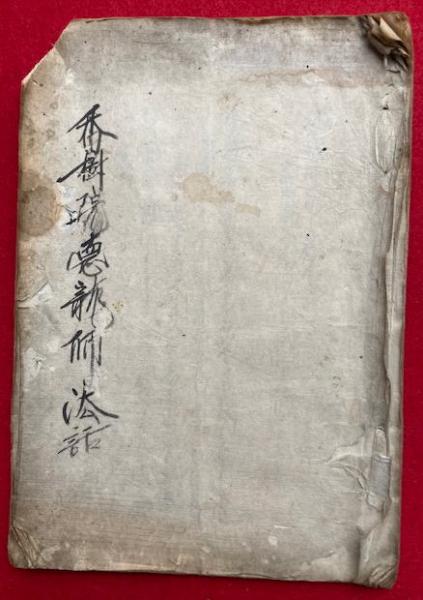 香樹院德龍師法話